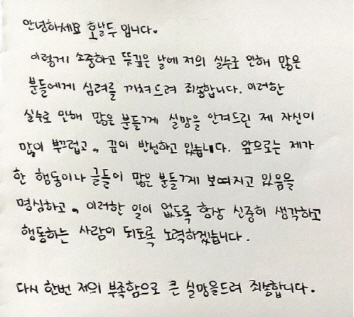 안녕하세요 호날두 입니다.
이렇게 소중하고 뜻깊은 날에 저의 실수로 인해 많은
분들에게 심려를 끼쳐드려 죄송합니다. 이러한
실수로 인해 많은 분들께 실망을 안겨드린 제 자신이
많이 부끄럽고, 깊이 반성하고 있습니다. 앞으로는 제가
한 행동이나 글들이 많은 분들께 보여지고 있음을
명심하고, 이러한 일이 없도록 항상 신중히 생각하고
행동하는 사람이 되도록 노력하겠습니다.
다시 한번 저의 부족함으로 큰 실망을드려 죄송합니다.